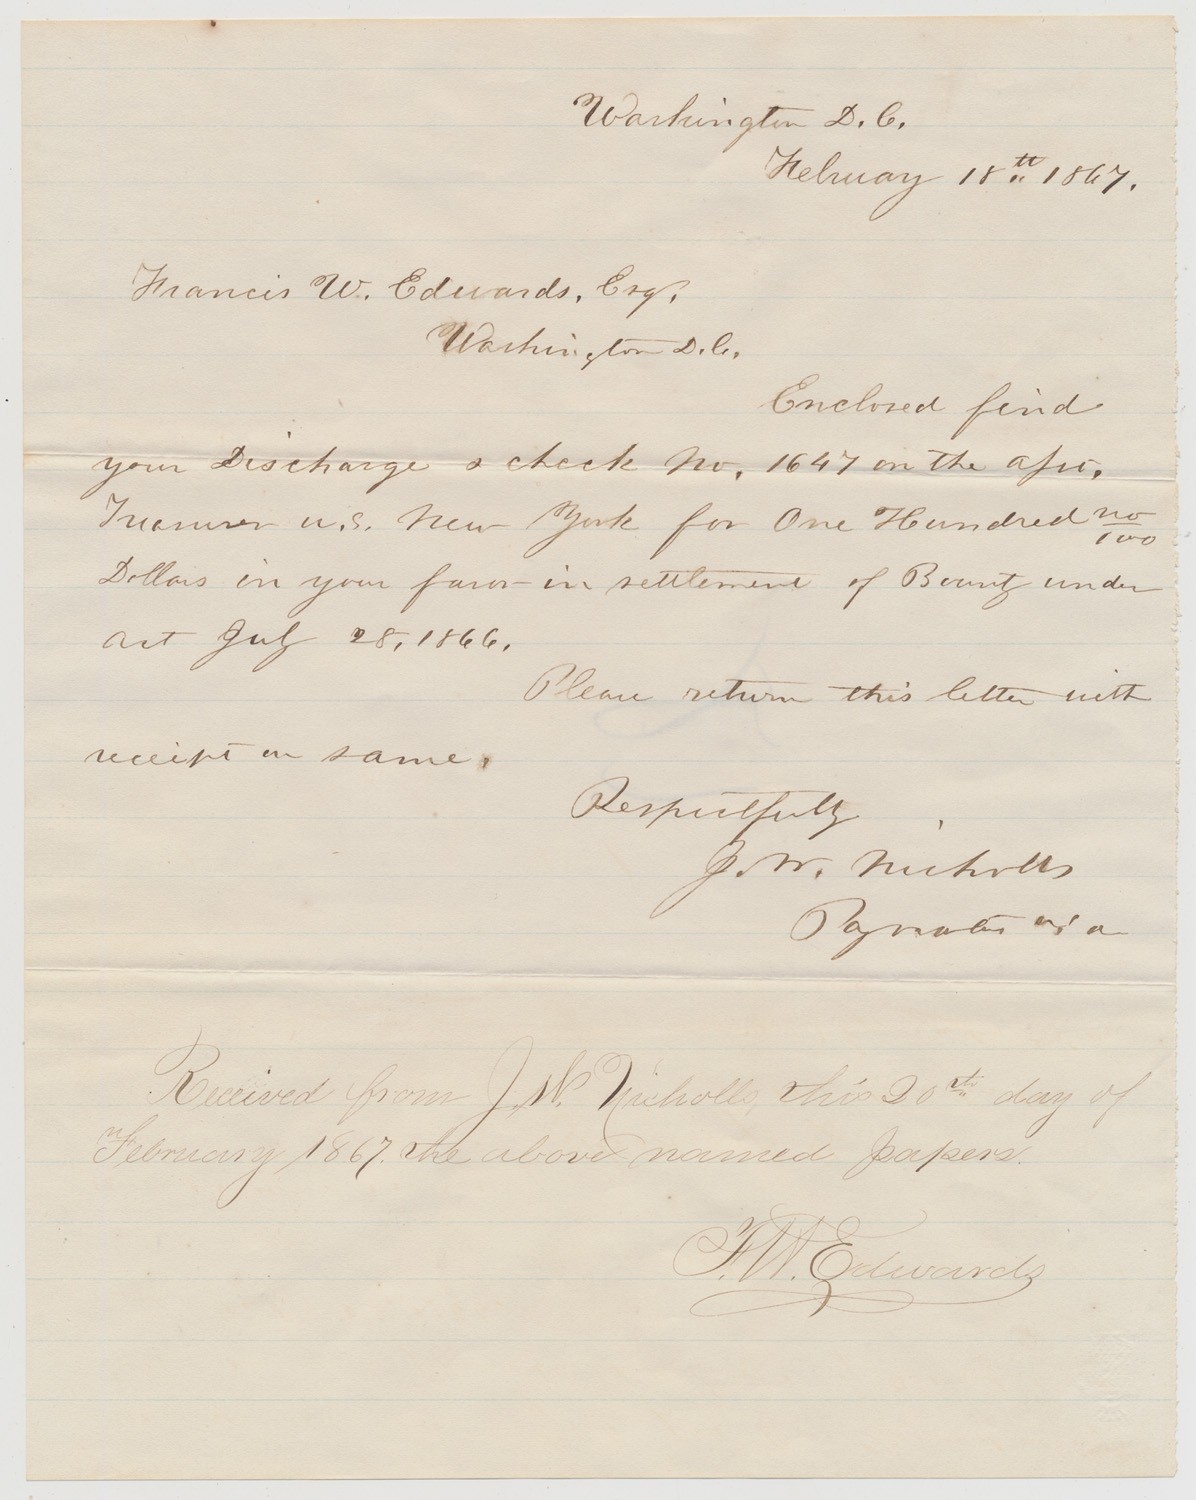 Washington D. C.
February 18th 1867.
Francis W. Edwards, Esq.
Washington D. C.
Enclosed find
your Discharge & check No. 1647 on the Asst.
Treasurer U.S. New York for One Hundred no/100
Dollars in your favor in settlement of Bounty under
act July 28, 1866.
Please return this letter with
receipt on same.
Respectfully
J. W. Nicholls
Paymaster USA
Received from J. W. Nicholls, this 20th day of
February 1867. the above named papers.
F. W. Edwards